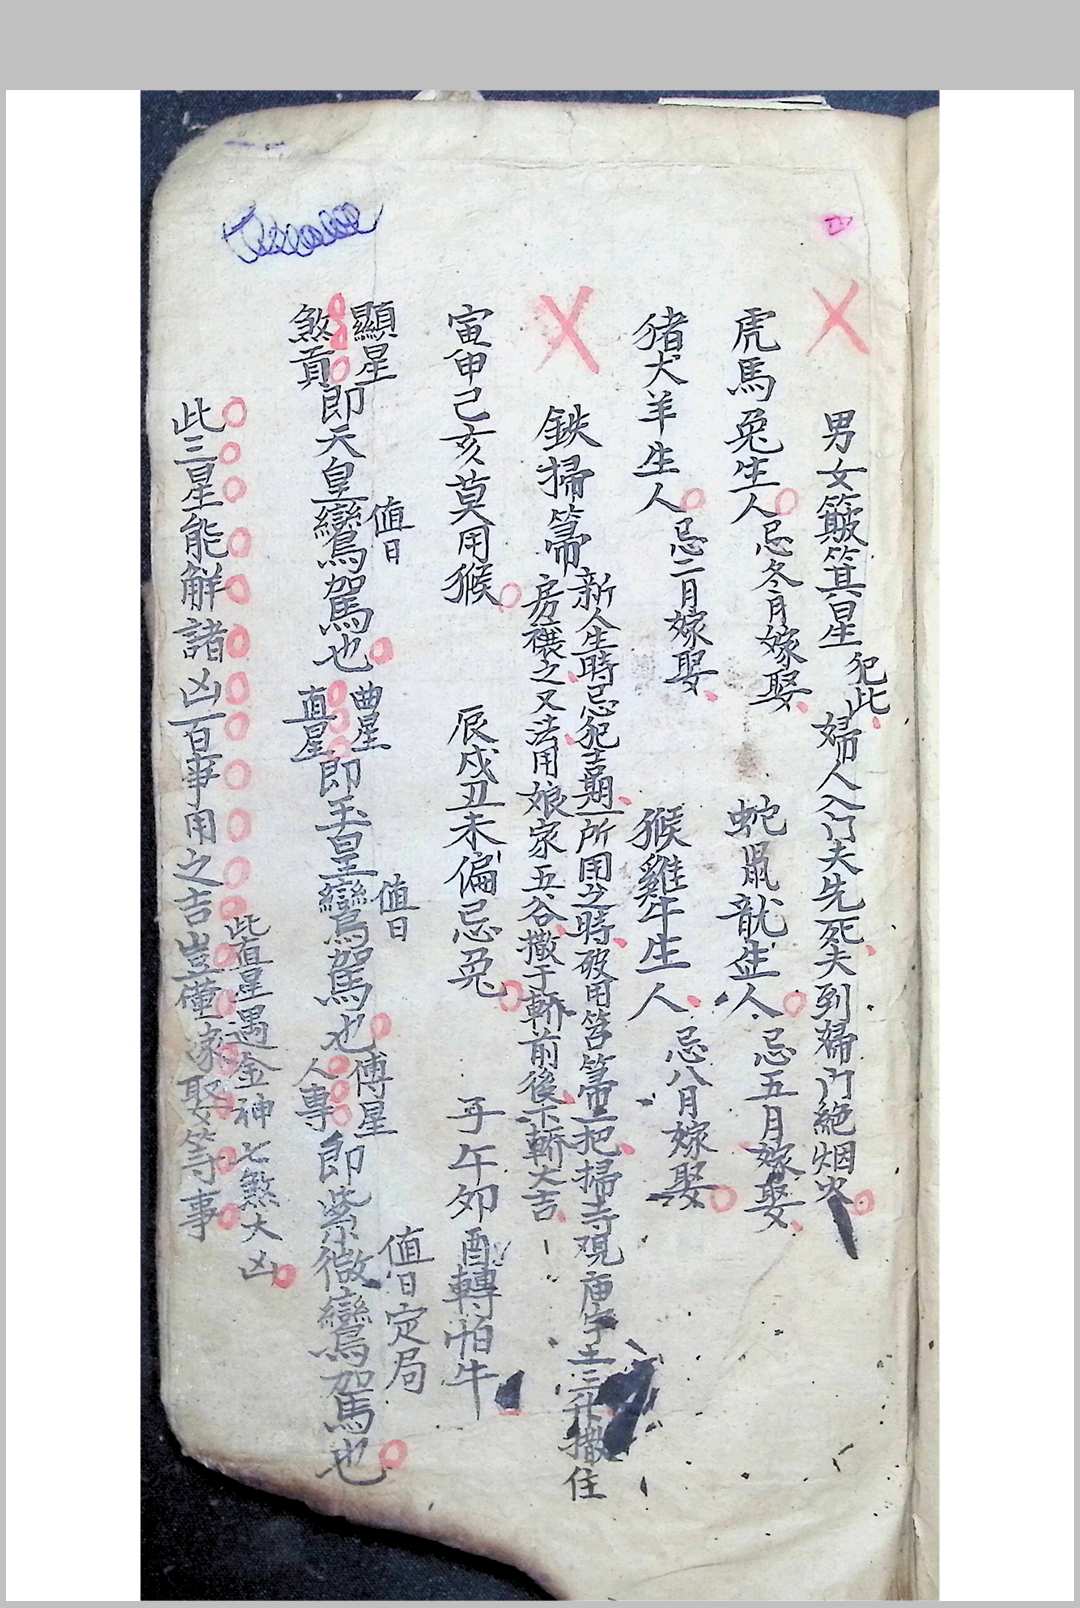 男女簸箕星 犯此 婦人入门夫先死夫到婦门絶烟火
虎馬兔生人 忌冬月嫁娶 蛇鼠龍生人 忌五月嫁娶
猪犬羊生人 忌二月嫁娶 猴雞牛生人 忌八月嫁娶
鉄掃箒
新人生時忌犯吉期一所用之時破用笤箒一把掃寺观庙宇土三升撒住
房禳之又法用娘家五谷撒于轎前後下轎大吉
寅申己亥莫用猴 辰戌丑未偏忌兔 子午卯酉轉怕牛
顯星 煞貢 即天皇鸞駕也 值日 曲星 直星 即玉皇鸞駕也 值日 傅星 人專 即紫微鸞駕也 值日定局
此三星能解諸凶百事用之吉豈僅嫁娶等事
此直星遇金神七煞大凶